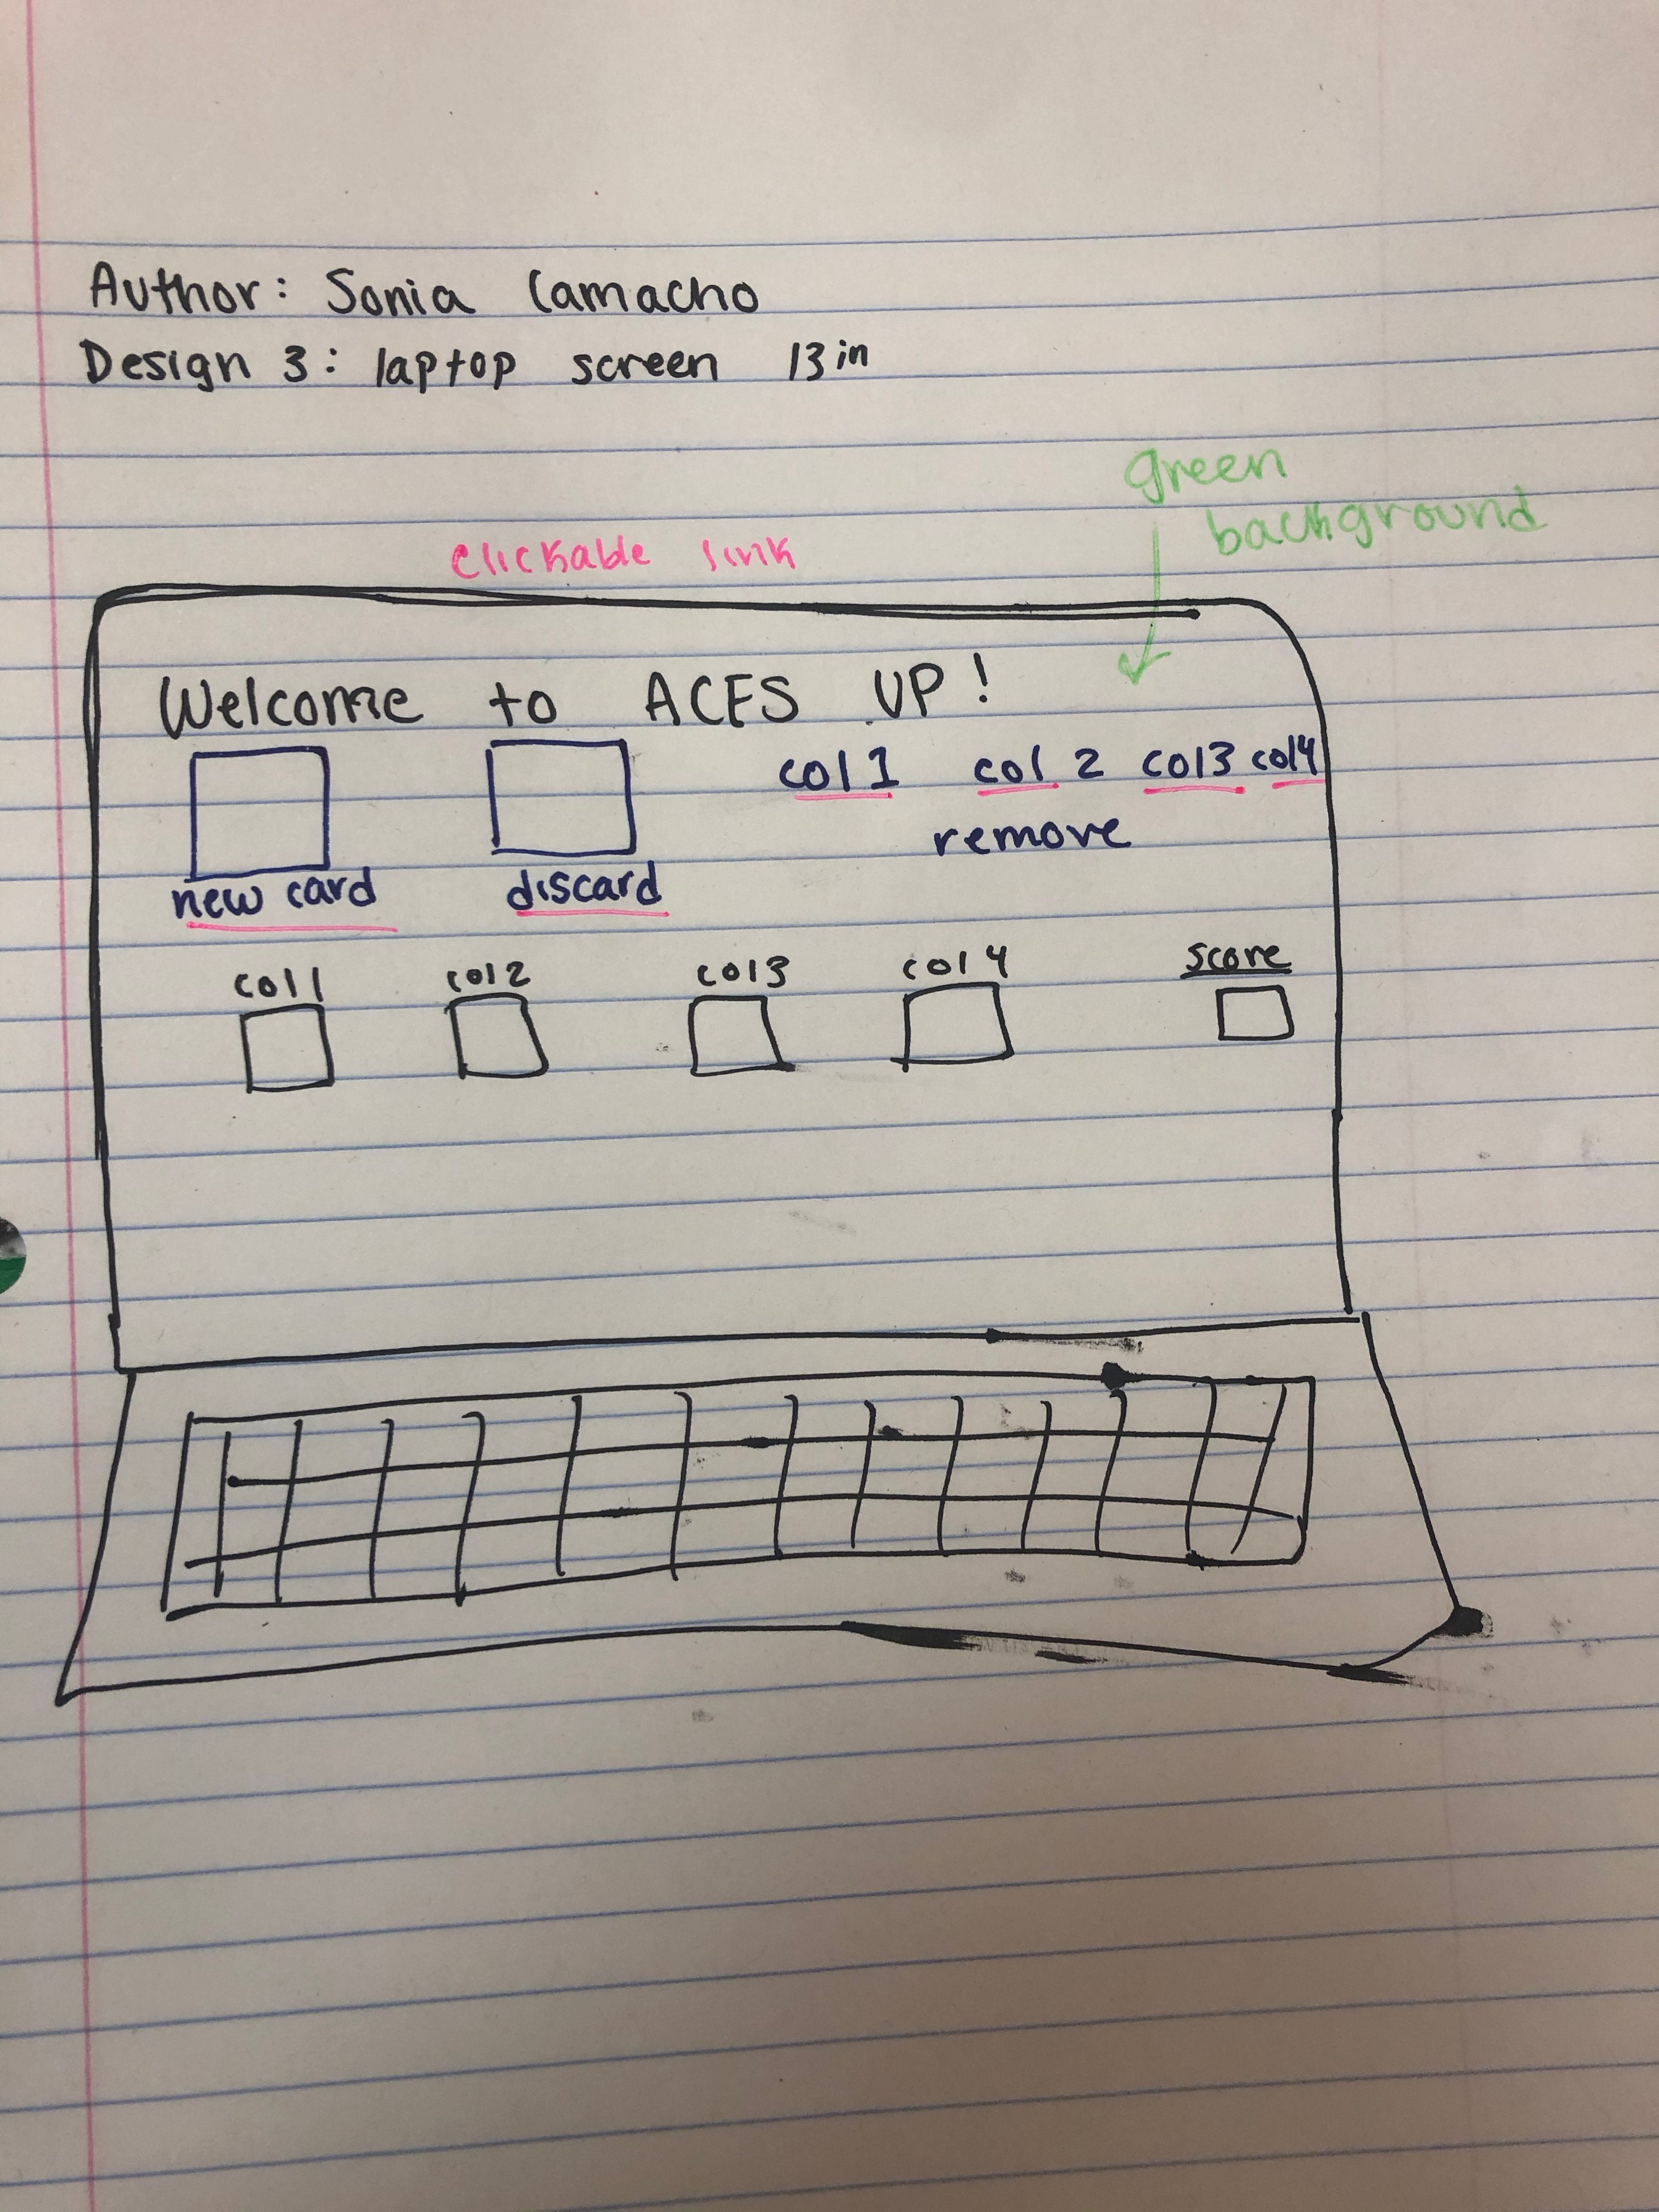 Author: Sonia Camacho
Design 3: laptop screen 13in
green
background
clickable link
Welcome to ACES UP!
col 1 col 2 col3 col4
remove
new card discard
col1 col2 col3 col4 score